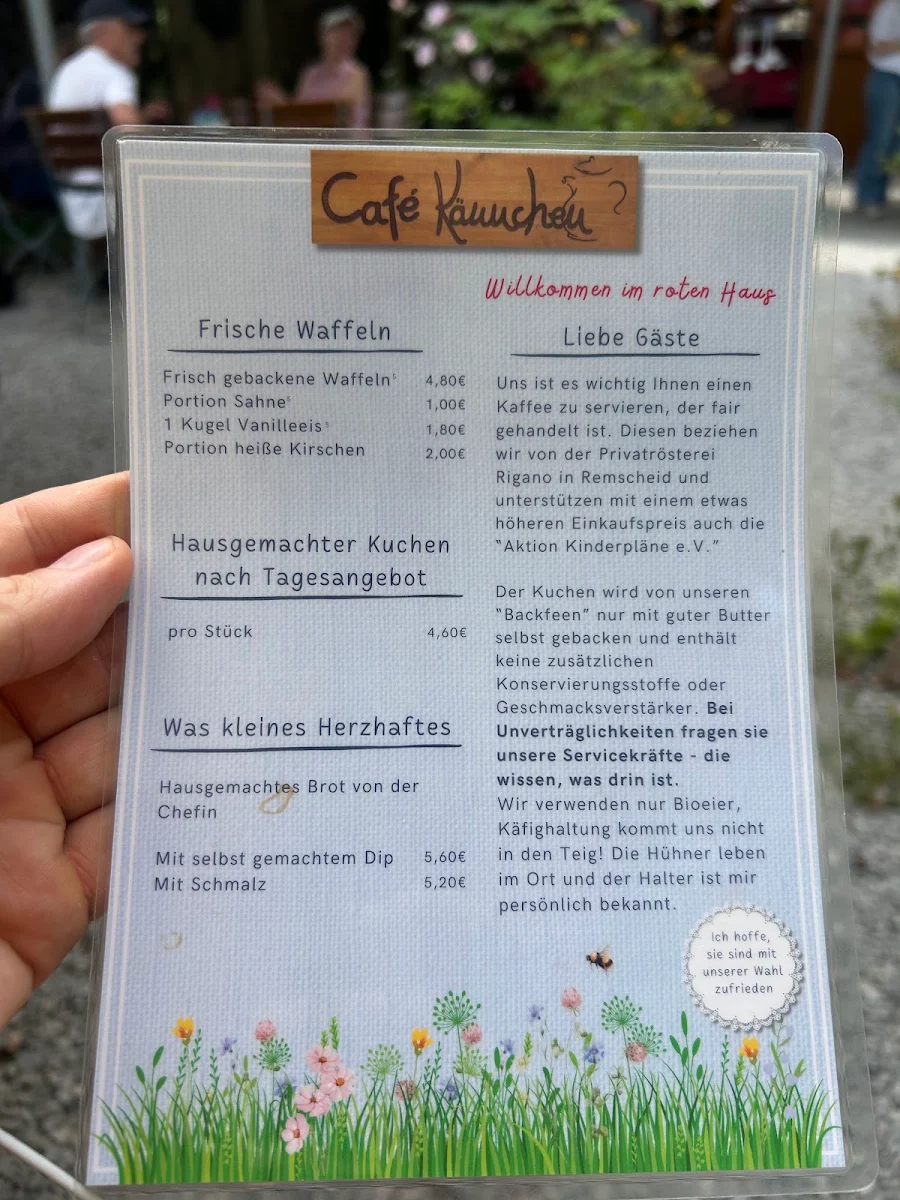 Café Kännchen
Willkommen im roten Haus
Frische Waffeln
Frisch gebackene Waffeln⁵ 4,80€
Portion Sahne⁵ 1,00€
1 Kugel Vanilleeis⁵ 1,80€
Portion heiße Kirschen 2,00€
Hausgemachter Kuchen
nach Tagesangebot
pro Stück 4,60€
Was kleines Herzhaftes
Hausgemachtes Brot von der
Chefin
Mit selbst gemachtem Dip 5,60€
Mit Schmalz 5,20€
Liebe Gäste
Uns ist es wichtig Ihnen einen
Kaffee zu servieren, der fair
gehandelt ist. Diesen beziehen
wir von der Privatrösterei
Rigano in Remscheid und
unterstützen mit einem etwas
höheren Einkaufspreis auch die
"Aktion Kinderpläne e.V."
Der Kuchen wird von unseren
"Backfeen" nur mit guter Butter
selbst gebacken und enthält
keine zusätzlichen
Konservierungsstoffe oder
Geschmacksverstärker. Bei
Unverträglichkeiten fragen sie
unsere Servicekräfte - die
wissen, was drin ist.
Wir verwenden nur Bioeier,
Käfighaltung kommt uns nicht
in den Teig! Die Hühner leben
im Ort und der Halter ist mir
persönlich bekannt.
Ich hoffe,
sie sind mit
unserer Wahl
zufrieden